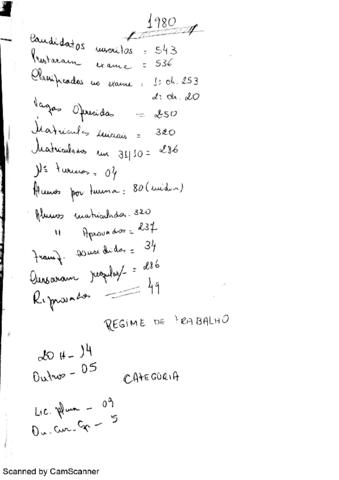 1980
Candidatos inscritos = 543
Prestaram exame = 536
Classificados no exame : 1ª ch. 253
2ª ch. 20
Vagas Oferecidas = 250
Matrículas iniciais = 320
Matriculados em 31/10 = 286
Nº turmas = 04
Alunos por turma : 80 (média)
Alunos matriculados. 320
" Aprovados = 237
Transf. concedidas = 34
Cursaram regular/- = 286
Reprovados 49
REGIME DE TRABALHO
20 H - 14
Outros - 05
CATEGORIA
Lic. plena - 09
- 5
Scanned by CamScanner